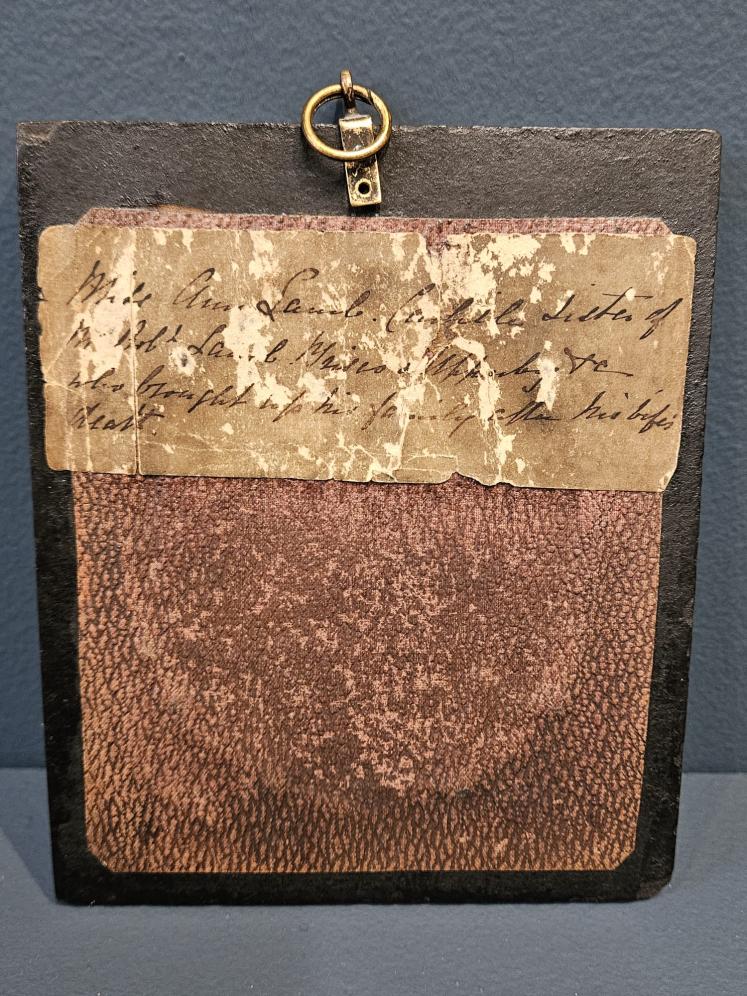 Miss Ann Lamb. Carlisle Sister of
Mr Robt Lamb
who brought up his family after his wife's
death.